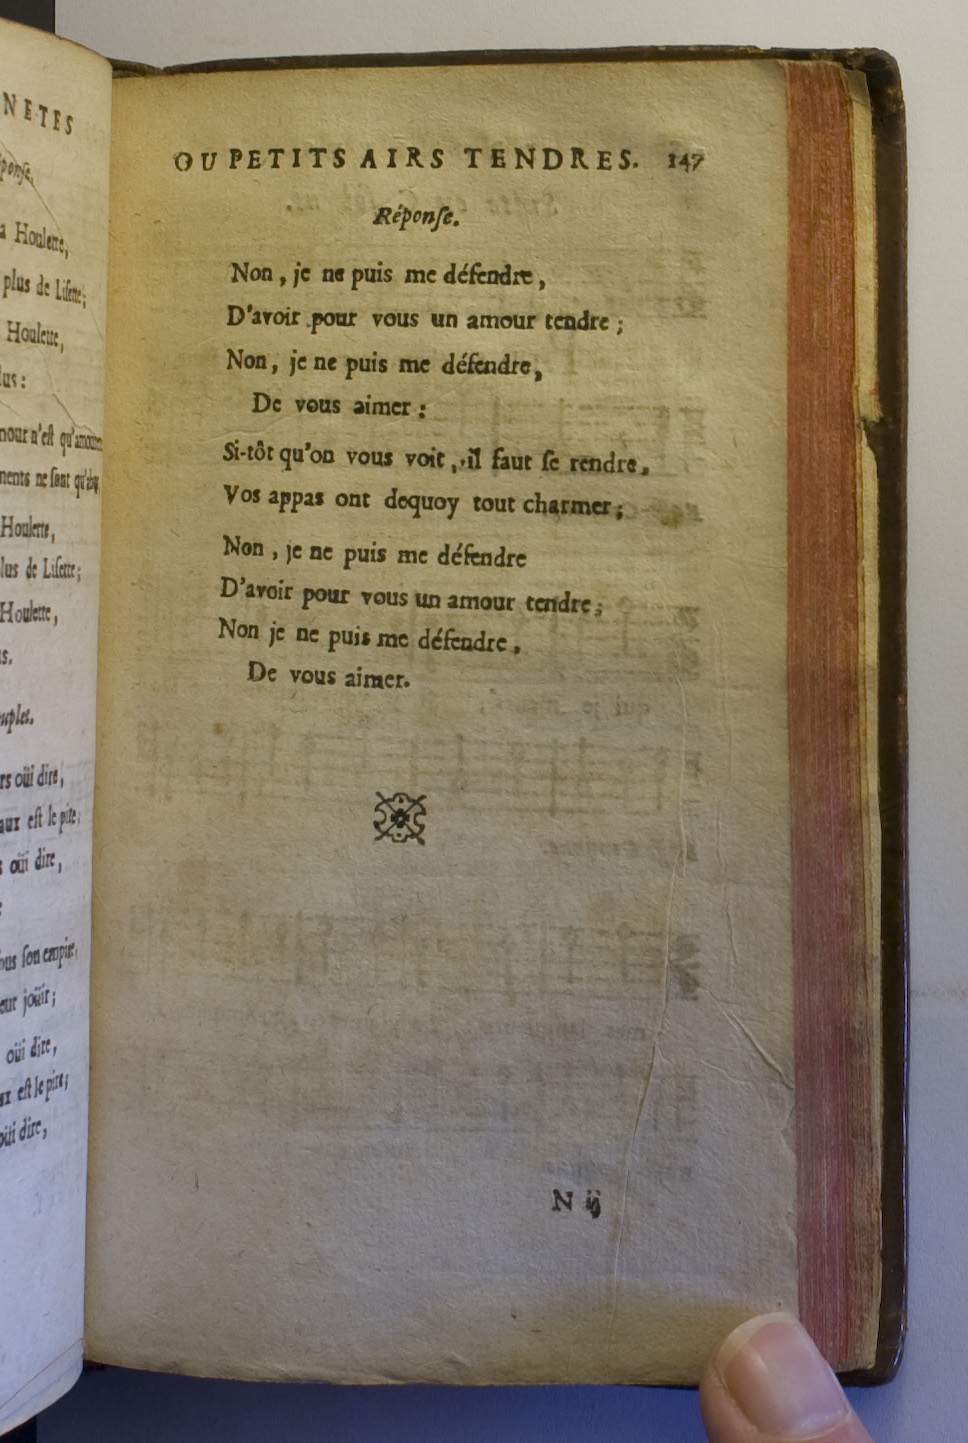 NETES
ponſe.
a Houlette,
plus de Liſette;
Houlette,
lus:
mour n'eſt qu'amour
ments ne ſont qu'abus,
Houlette,
lus de Liſette;
Houlette,
s.
uplet.
rs oüi dire,
aux eſt le pire;
s oüi dire,
ous ſon empire,
eur joüir;
oüi dire,
ux eſt le pire;
oüi dire,
OU PETITS AIRS TENDRES. 147
Réponſe.
Non, je ne puis me défendre,
D'avoir pour vous un amour tendre;
Non, je ne puis me défendre,
De vous aimer:
Si-tôt qu'on vous voit, il faut ſe rendre,
Vos appas ont dequoy tout charmer;
Non, je ne puis me défendre
D'avoir pour vous un amour tendre;
Non je ne puis me défendre,
De vous aimer.
N ij